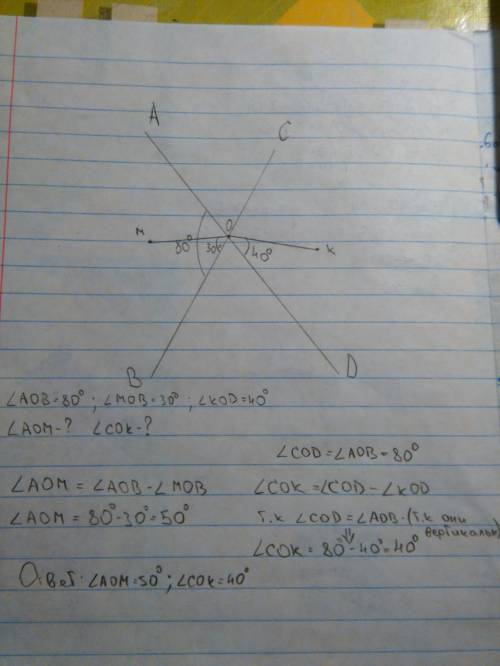 A
C
O
М
80°
30°
40°
К
B
D
∠AOB=80°; ∠MOB=30°; ∠KOD=40°
∠AOM-? ∠COK-?
∠COD=∠AOB=80°
∠AOM = ∠AOB-∠MOB
∠COK=∠COD-∠KOD
∠AOM = 80°-30°=50°
т.к ∠COD=∠AOB (т.к они
вертикальн
⇓
∠COK = 80°-40°=40°
Ответ: ∠AOM=50°; ∠COK=40°